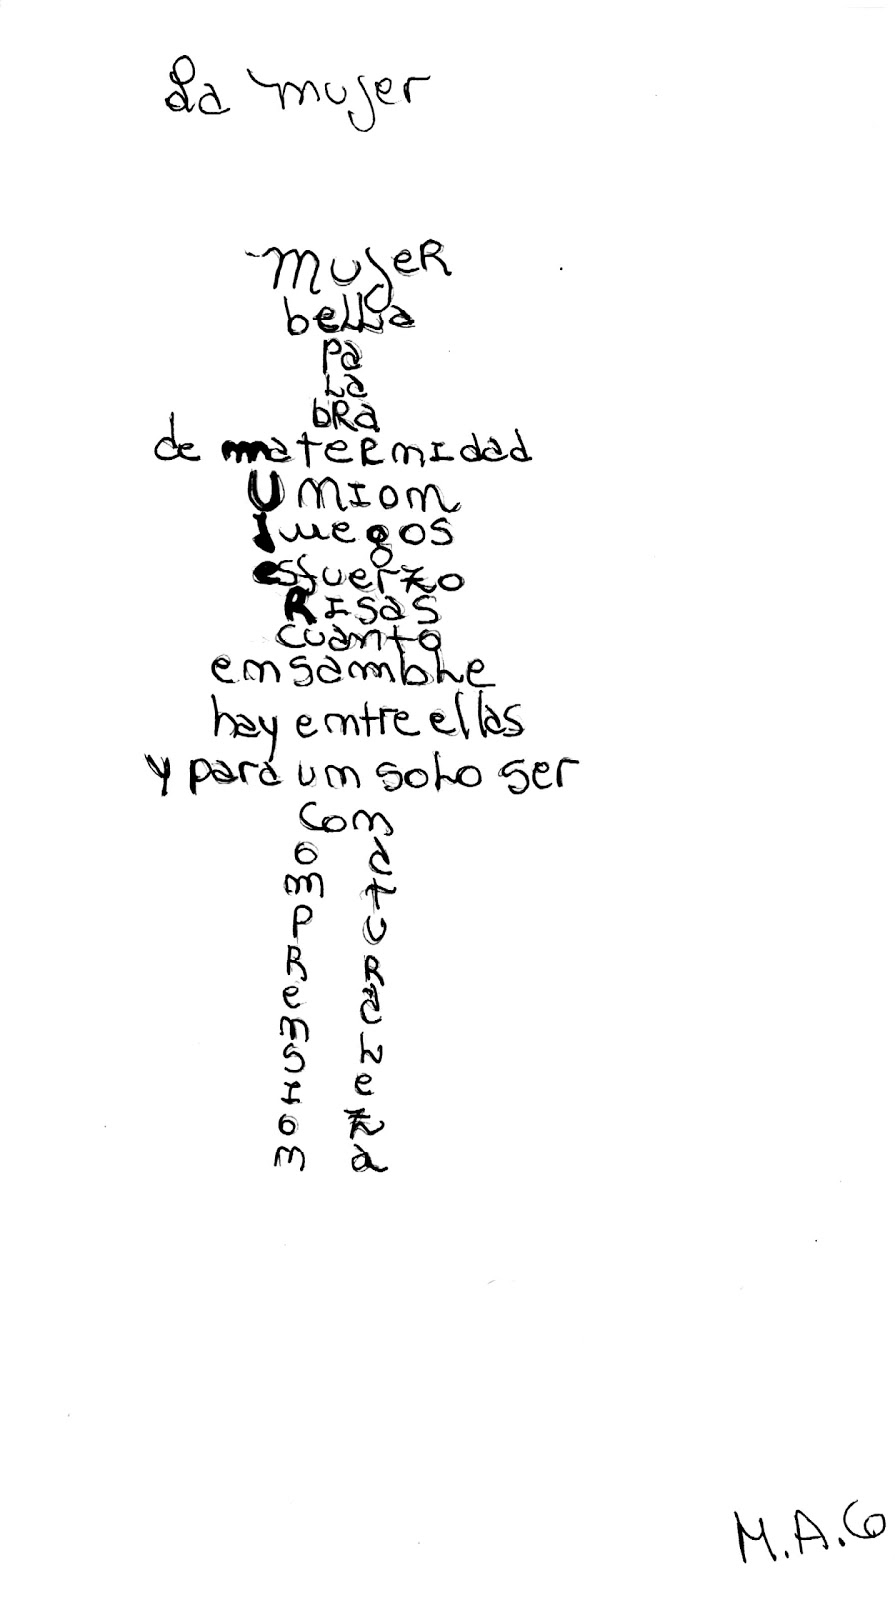 La mujer
mujeR
bella
pa
La
bRa
de mateRnIdad
UnIon
Juegos
esfuerzo
RIsas
cuanto
ensambLe
hay entre ellas
y para un soLo ser
Con
ompRensIon
atuRaleza
M.A.G